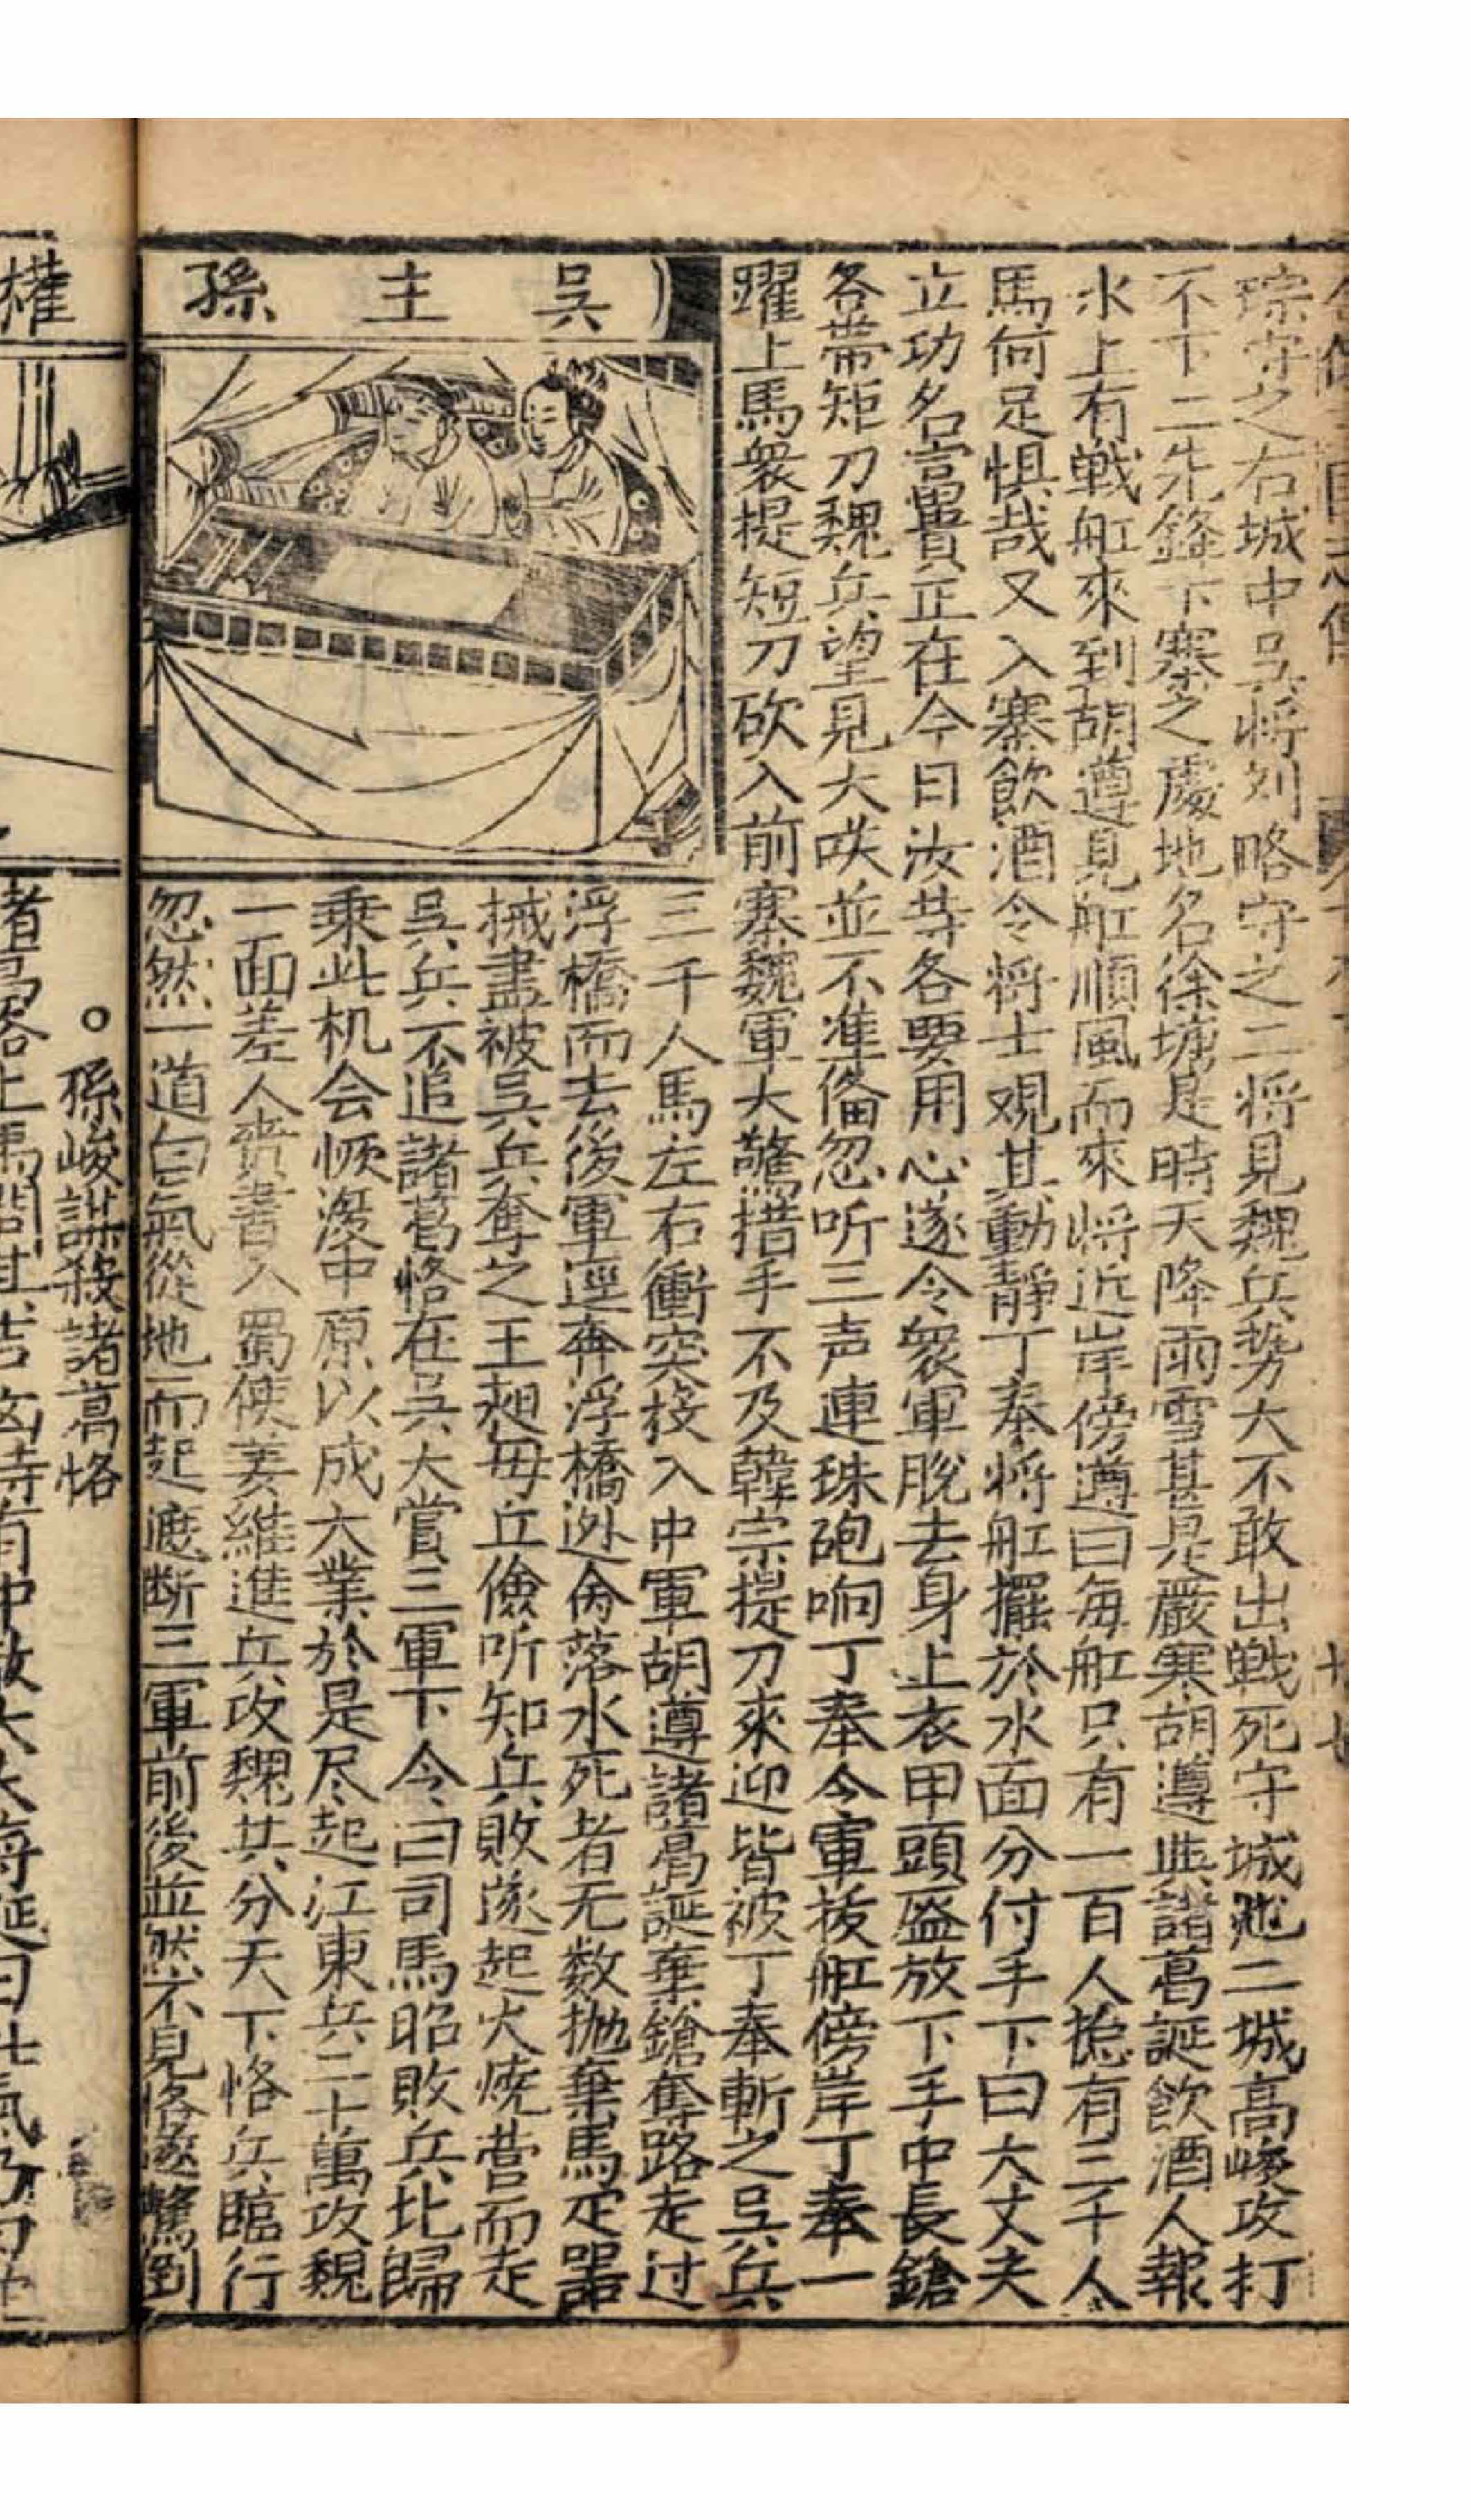 琮守之右城中吳將刘略守之二將見魏兵势大不敢出戰死守城池二城高峻攻打
不下二先鋒下寨之處地名徐塘是時天降雨雪甚是嚴寒胡遵與諸葛誕飲酒人報
水上有戰舡來到胡遵見舡順風而來將近岸傍遵曰每舡只有一百人揔有三千人
馬何足惧哉又入寨飲酒令將士观其動靜丁奉將舡擺於水面分付手下曰大丈夫
立功名富貴正在今日汝等各要用心遂令眾軍脫去身上衣甲頭盔放下手中長鎗
各帶矩刀魏兵望見大咲並不準俻忽听三声連珠砲响丁奉令軍拔舡傍岸丁奉一
躍上馬眾提短刀砍入前寨魏軍大驚措手不及韓宗提刀來迎皆被丁奉斬之吳兵
吳主孫
三千人馬左右衝突殺入中軍胡遵諸葛誕棄鎗奪路走过
浮橋而去後軍逕奔浮橋迯命落水死者无数抛棄馬疋噐
械盡被吳兵奪之王昶毋丘儉听知兵敗遂起火燒營而走
吳兵不追諸葛恪在吳大賞三軍下令曰司馬昭敗兵北歸
乘此机会恢復中原以成大業於是尽起江東兵二十萬攻魏
一面差人赍書入蜀使姜維進兵攻魏共分天下恪兵臨行
忽然一道白氣從地而起遮断三軍前後並然不見恪遂驚倒
權
孫峻謀殺諸葛恪